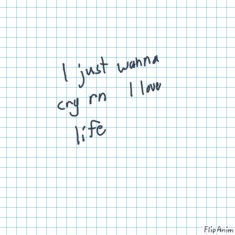 I just wanna
cry rn I love
life
FlipAnim